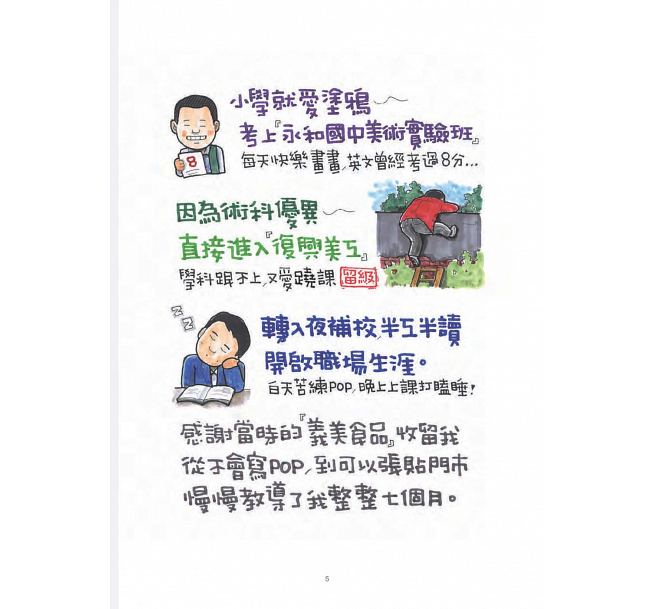 小學就愛塗鴉~
考上『永和國中美術實驗班』
每天快樂畫畫,英文曾經考過8分...
8
因為術科優異~
直接進入『復興美工』
學科跟不上,又愛蹺課 留級
Z
Z
轉入夜補校,半工半讀
開啟職場生涯。
白天苦練POP,晚上上課打瞌睡!
感謝當時的『義美食品』收留我
從不會寫POP,到可以張貼門市
慢慢教導了我整整七個月。
5